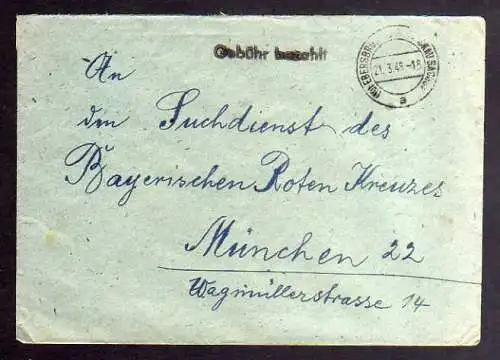 Gebühr bezahlt
21.3.48.-18
a
An
den Suchdienst des
Bayerischen Roten Kreuzes
München 22
Wagmüllerstrasse 14